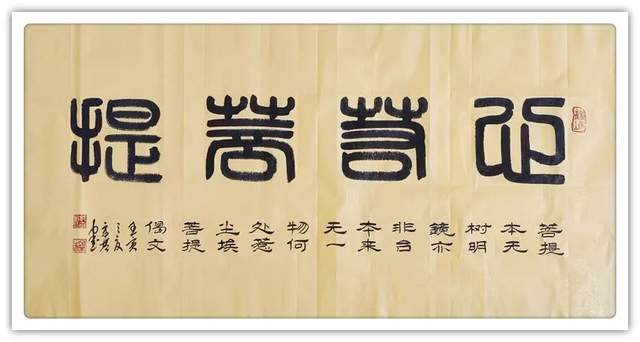 心若菩提
菩提
本无
树明
镜亦
非台
本来
无一
物何
处惹
尘埃
菩提
偈文
壬寅